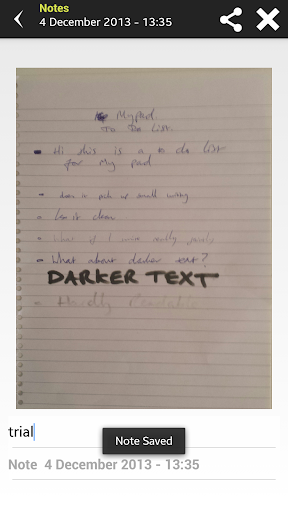 Notes
4 December 2013 - 13:35
Mypad
To Do List.
- Hi this is a to do list
for my pad
- does it pick up small writing
- is it clear
- What if I write really
- What about darker text?
DARKER TEXT
- Hardly readable
trial
Note Saved
Note 4 December 2013 - 13:35